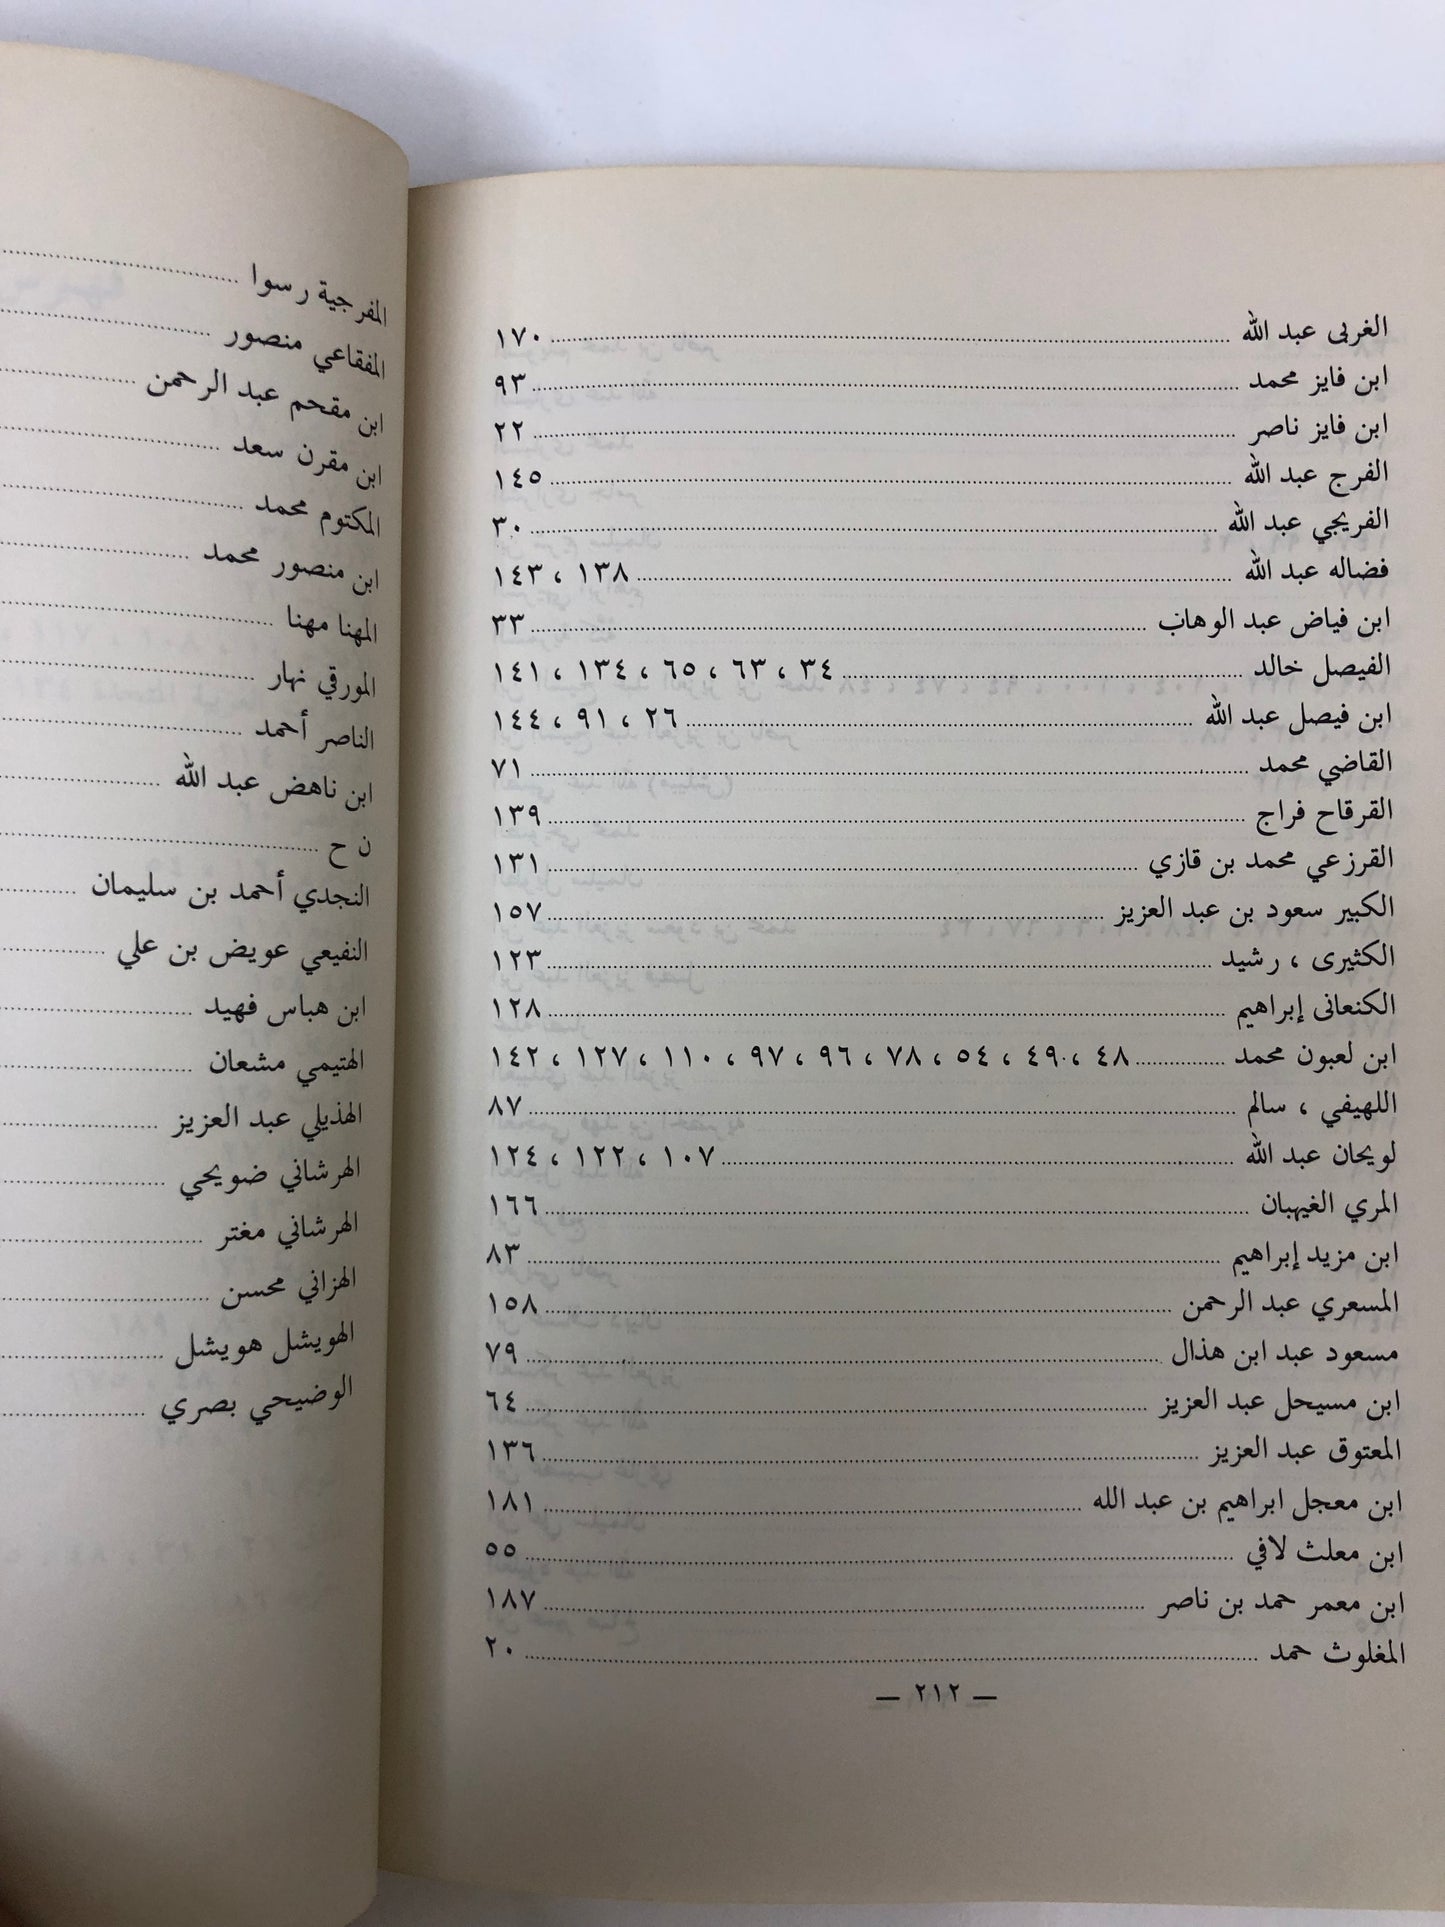 الغربى عبد الله ........ ١٧٠
ابن فايز محمد ........ ٩٣
ابن فايز ناصر ........ ٢٢
الفرج عبد الله ........ ١٤٥
الفريجي عبد الله ........ ٣٠
فضاله عبد الله ........ ١٣٨ ، ١٤٣
ابن فياض عبد الوهاب ........ ٣٣
الفيصل خالد ........ ٣٤ ، ٦٣ ، ٦٥ ، ١٣٤ ، ١٤١
ابن فيصل عبد الله ........ ٢٦ ، ٩١ ، ١٤٤
القاضي محمد ........ ٧١
القرقاح فراج ........ ١٣٩
القرزعي محمد بن قازي ........ ١٣١
الكبير سعود بن عبد العزيز ........ ١٥٧
الكثيرى ، رشيد ........ ١٢٣
الكنعانى إبراهيم ........ ١٢٨
ابن لعبون محمد ........ ٤٨ ، ٤٩ ، ٥٤ ، ٧٨ ، ٩٦ ، ٩٧ ، ١١٠ ، ١٢٧ ، ١٤٢
اللهيفي ، سالم ........ ٨٧
لويحان عبد الله ........ ١٠٧ ، ١٢٢ ، ١٢٤
المري الغيهبان ........ ١٦٦
ابن مزيد إبراهيم ........ ٨٣
المسعري عبد الرحمن ........ ١٥٨
مسعود عبد ابن هذال ........ ٧٩
ابن مسيحل عبد العزيز ........ ٦٤
المعتوق عبد العزيز ........ ١٣٦
ابن معجل ابراهيم بن عبد الله ........ ١٨١
ابن معلث لافي ........ ٥٥
ابن معمر حمد بن ناصر ........ ١٨٧
المغلوث حمد ........ ٢٠
— ٢١٢ —
المفرجية رسوا ........
المفقاعي منصور ........
ابن مقحم عبد الرحمن ........
ابن مقرن سعد ........
المكتوم محمد ........
ابن منصور محمد ........
المهنا مهنا ........
المورقي نهار ........
الناصر أحمد ........
ابن ناهض عبد الله ........
ن ح ........
النجدي أحمد بن سليمان ........
النفيعي عويض بن علي ........
ابن هباس فهيد ........
الهتيمي مشعان ........
الهذيلي عبد العزيز ........
الهرشاني ضويحي ........
الهرشاني مغتر ........
الهزاني محسن ........
الهويشل هويشل ........
الوضيحي بصري ........